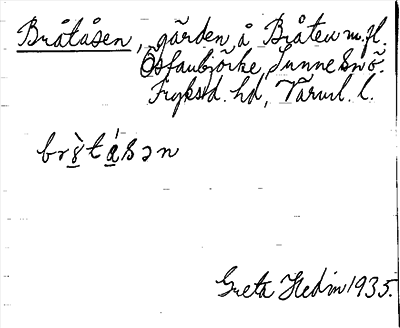 Bråtåsen, gården å Bråten m. fl.
Östanbjörke, Sunne snö.
Fryksd. hd, Värml. l.
br ò t á s ə n
Greta Hedin 1935.